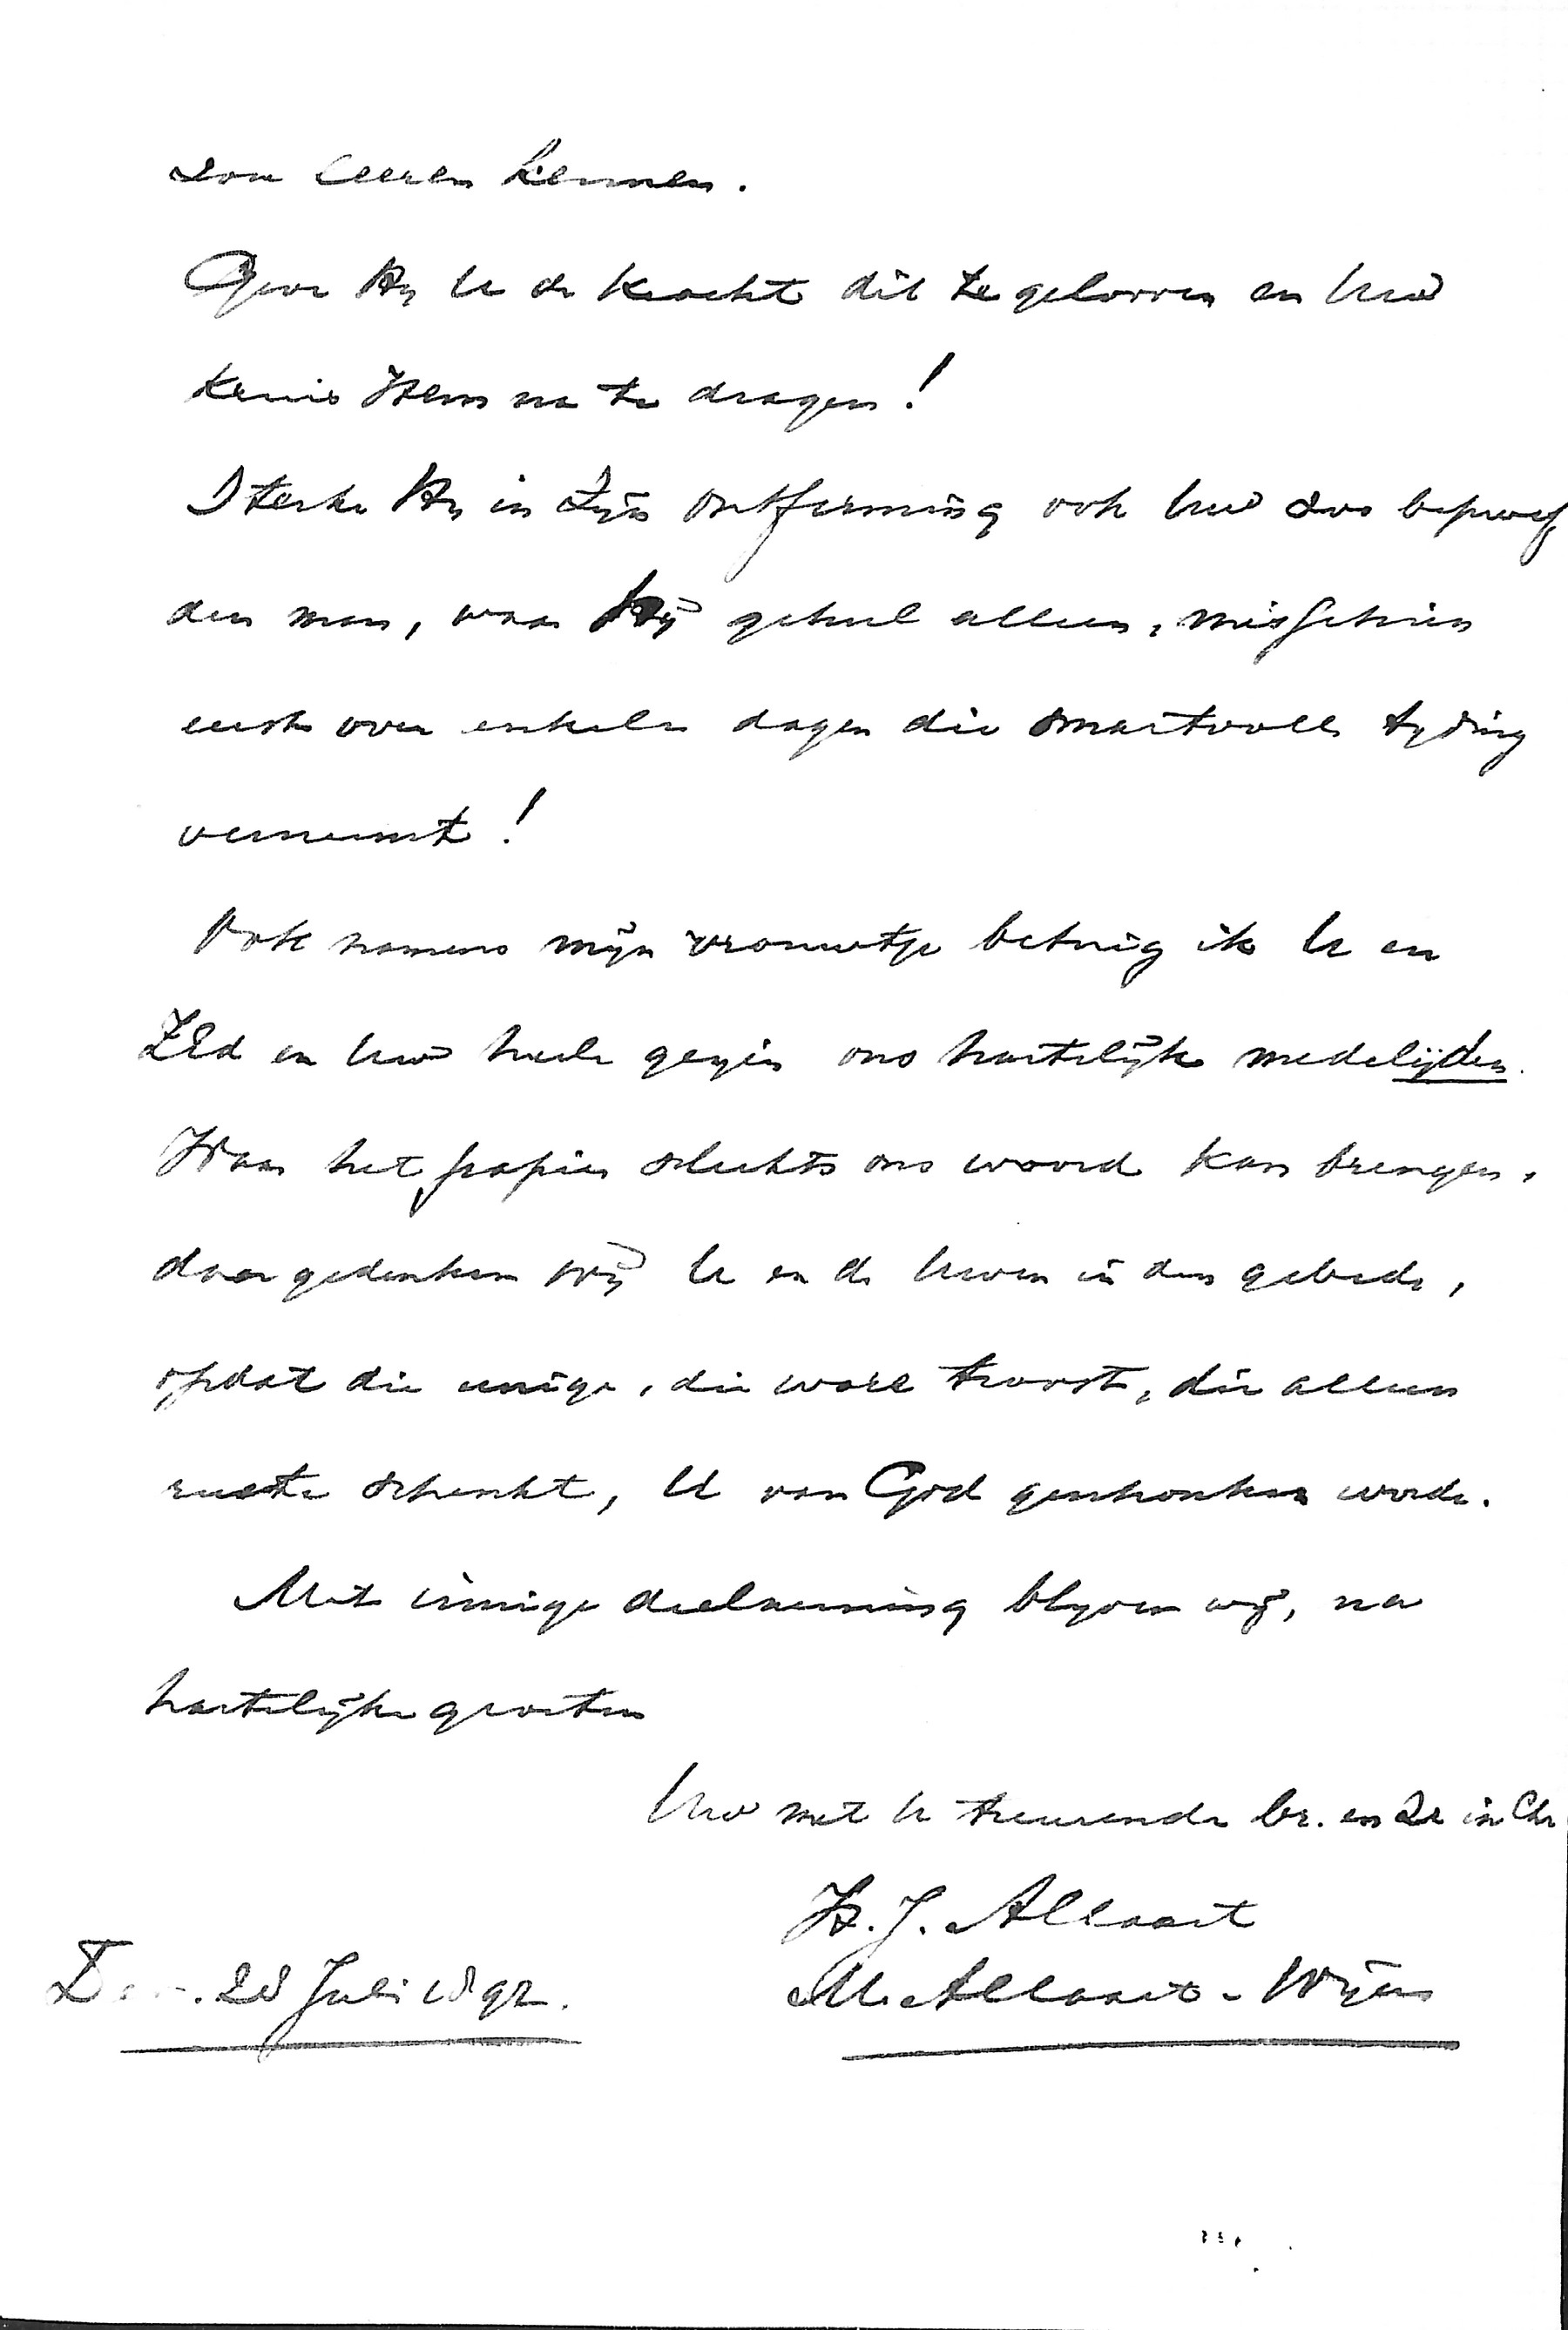 zou leeren kennen.
Geve Hij U de kracht dit te gelooven en Uw
kruis Hem na te dragen!
Sterke Hij in Zijn ontferming ook Uw zoo beproef
den man, waar hij geheel alleen, misschien
eerst over enkele dagen die smartvolle tijding
verneemt!
Ook namens mijn vrouwtje betuig ik U en
ZEd en Uw heele gezin ons hartelijk medelijden.
Waar het papier slechts ons woord kan brengen,
daar gedenken wij U en de Uwen in den gebede,
opdat die eenige, die ware troost, die alleen
ruste schenkt, U van God geschonken worde.
Met innige deelneming blijven wij, na
hartelijke groeten
Uw met U treurende br. en zr in Chr
H. J. Allaart
M. Allaart - Wijers
28 Juli 1892.